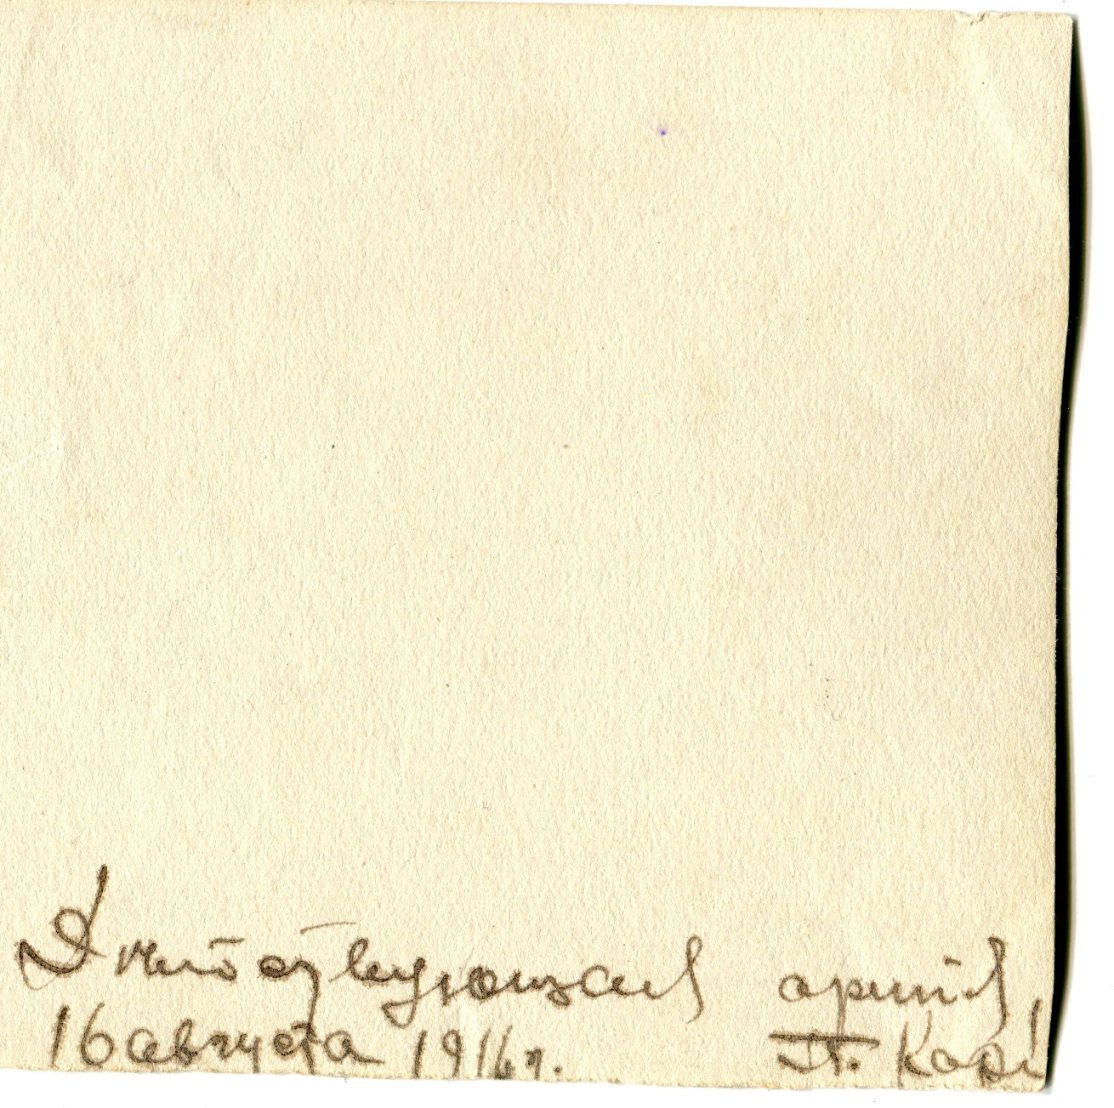 Действующая армія,
16 августа 1916 г. П. Карі